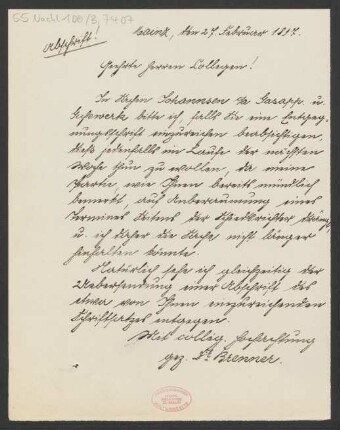 SS Nachl 100/B, 7407
Abschrift!
Mainz, den 27. Februar 1897.
Geehrte Herren Collegen!
In Sachen Johannsen c/a u.
bitte ich, falls Sie eine Entgeg-
nungsschrift einzureichen beabsichtigen,
dieß jedenfalls im Laufe der nächsten
Woche thun zu wollen, da meine
Partie, wie Ihnen bereits mündlich
bemerkt, auf Anberaumung eines
Termines Seitens der Schiedsrichter drängt
u. ich daher die Sache nicht länger
hinhalten könnte.
Natürlich sehe ich gleichzeitig der
Uebersendung einer Abschrift des
etwa von Ihnen einzureichenden
Schriftsatzes entgegen.
Mit colleg. Hochachtung
gez. Dr. Brenner.